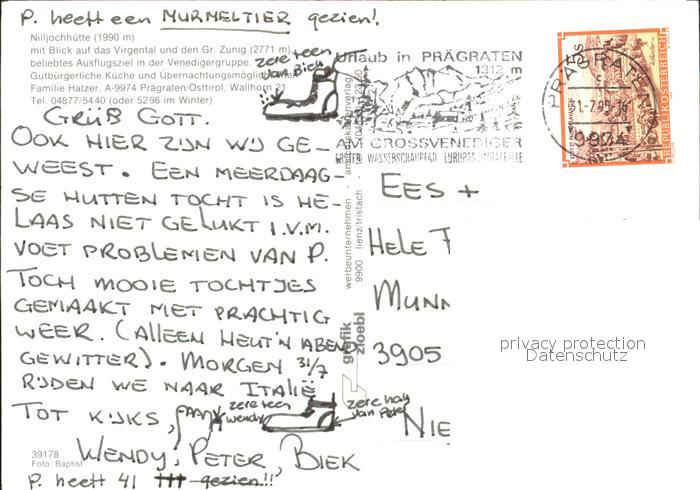 P. heeft een MURMELTIER gezien!
Nilljochhütte (1990 m)
mit Blick auf das Virgental und den Gr. Zunig (2771 m),
beliebtes Ausflugsziel in der Venedigergruppe.
Gutbürgerliche Küche und Übernachtungsmöglich
Familie Hatzer. A-9974 Prägraten/Osttirol, Wallhorn 21
Tel. 04877/5440 (oder 5296 im Winter)
zere teen
van Biek
Urlaub in PRÄGRATEN
1312 m
AM GROSSVENEDIGER
ERSTER WASSERSCHAUPFAD EUROPAS UMBALFÄLLE
PRÄGRATEN
31-7.95-16
9974
REPUBLIK ÖSTERREICH
GRÜß GOTT.
OOK HIER ZIJN WIJ GE-
WEEST. EEN MEERDAAG-
SE HUTTEN TOCHT IS HE-
LAAS NIET GELUKT I.V.M.
VOET PROBLEMEN VAN P.
TOCH MOOIE TOCHTJES
GEMAAKT MET PRACHTIG
WEER. (ALLEEN HEUT'N ABEND
GEWITTER). MORGEN 31/7
RIJDEN WE NAAR ITALIË
TOT KIJKS,
zere teen
Wendy
zere hak
van Peter
WENDY, PETER, BIEK
P. heeft 41 gezien!!
39178
Foto: Baptist
werbeunternehmen - ansichtskartenverlag
9900 lienz/tristach
grafik
zloebl
EES +
HELE
MUNN
3905
NIE
privacy protection
Datenschutz